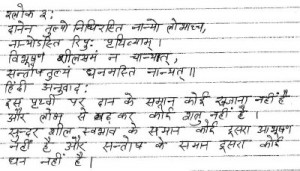 श्लोक २:
दानेन तुल्यो निधिरस्ति नान्यो लोभाच्च,
नान्योऽस्ति रिपुः पृथिव्याम्।
विभूषणं शीलसमं न चान्यत्,
सन्तोषतुल्यं धनमस्ति नान्यत्॥
हिंदी अनुवाद:
इस पृथ्वी पर दान के समान कोई खजाना नहीं है
और लोभ से बढ़ कर कोई शत्रु नहीं है।
सुन्दर शील स्वभाव के समान कोई दूसरा आभूषण
नहीं है और सन्तोष के समान दूसरा कोई
धन नहीं है।